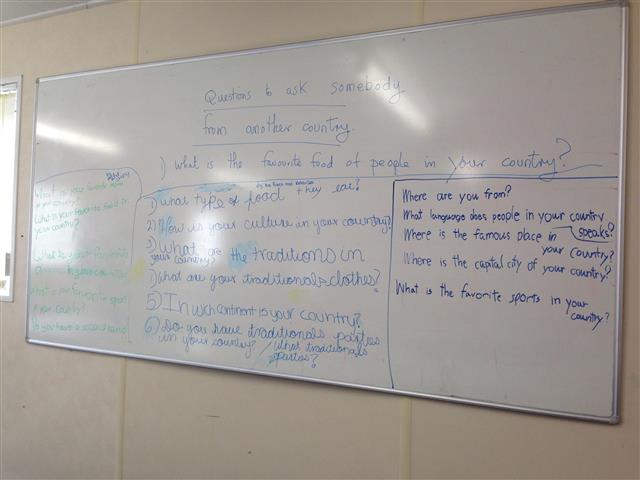 Questions to ask somebody
from another country.
1) what is the favourite food of people in your country?
What is your favourite
in your country?
What is your favorite food in
your country?
What is your favorite
What is your favorite sport
in your country?
Do you have a second
1) what type of food they eat?
2) How is your culture in your country?
3) What are the traditions in
your country?
) what are your traditionals clothes?
5) In wich continent is your country?
6) Do you have traditionals parties
in your country? / what traditionals
parties?
Where are you from?
What language does people in your country
speaks?
Where is the famous place in
your country?
Where is the capital city of your country?
What is the favorite sports in your
country?